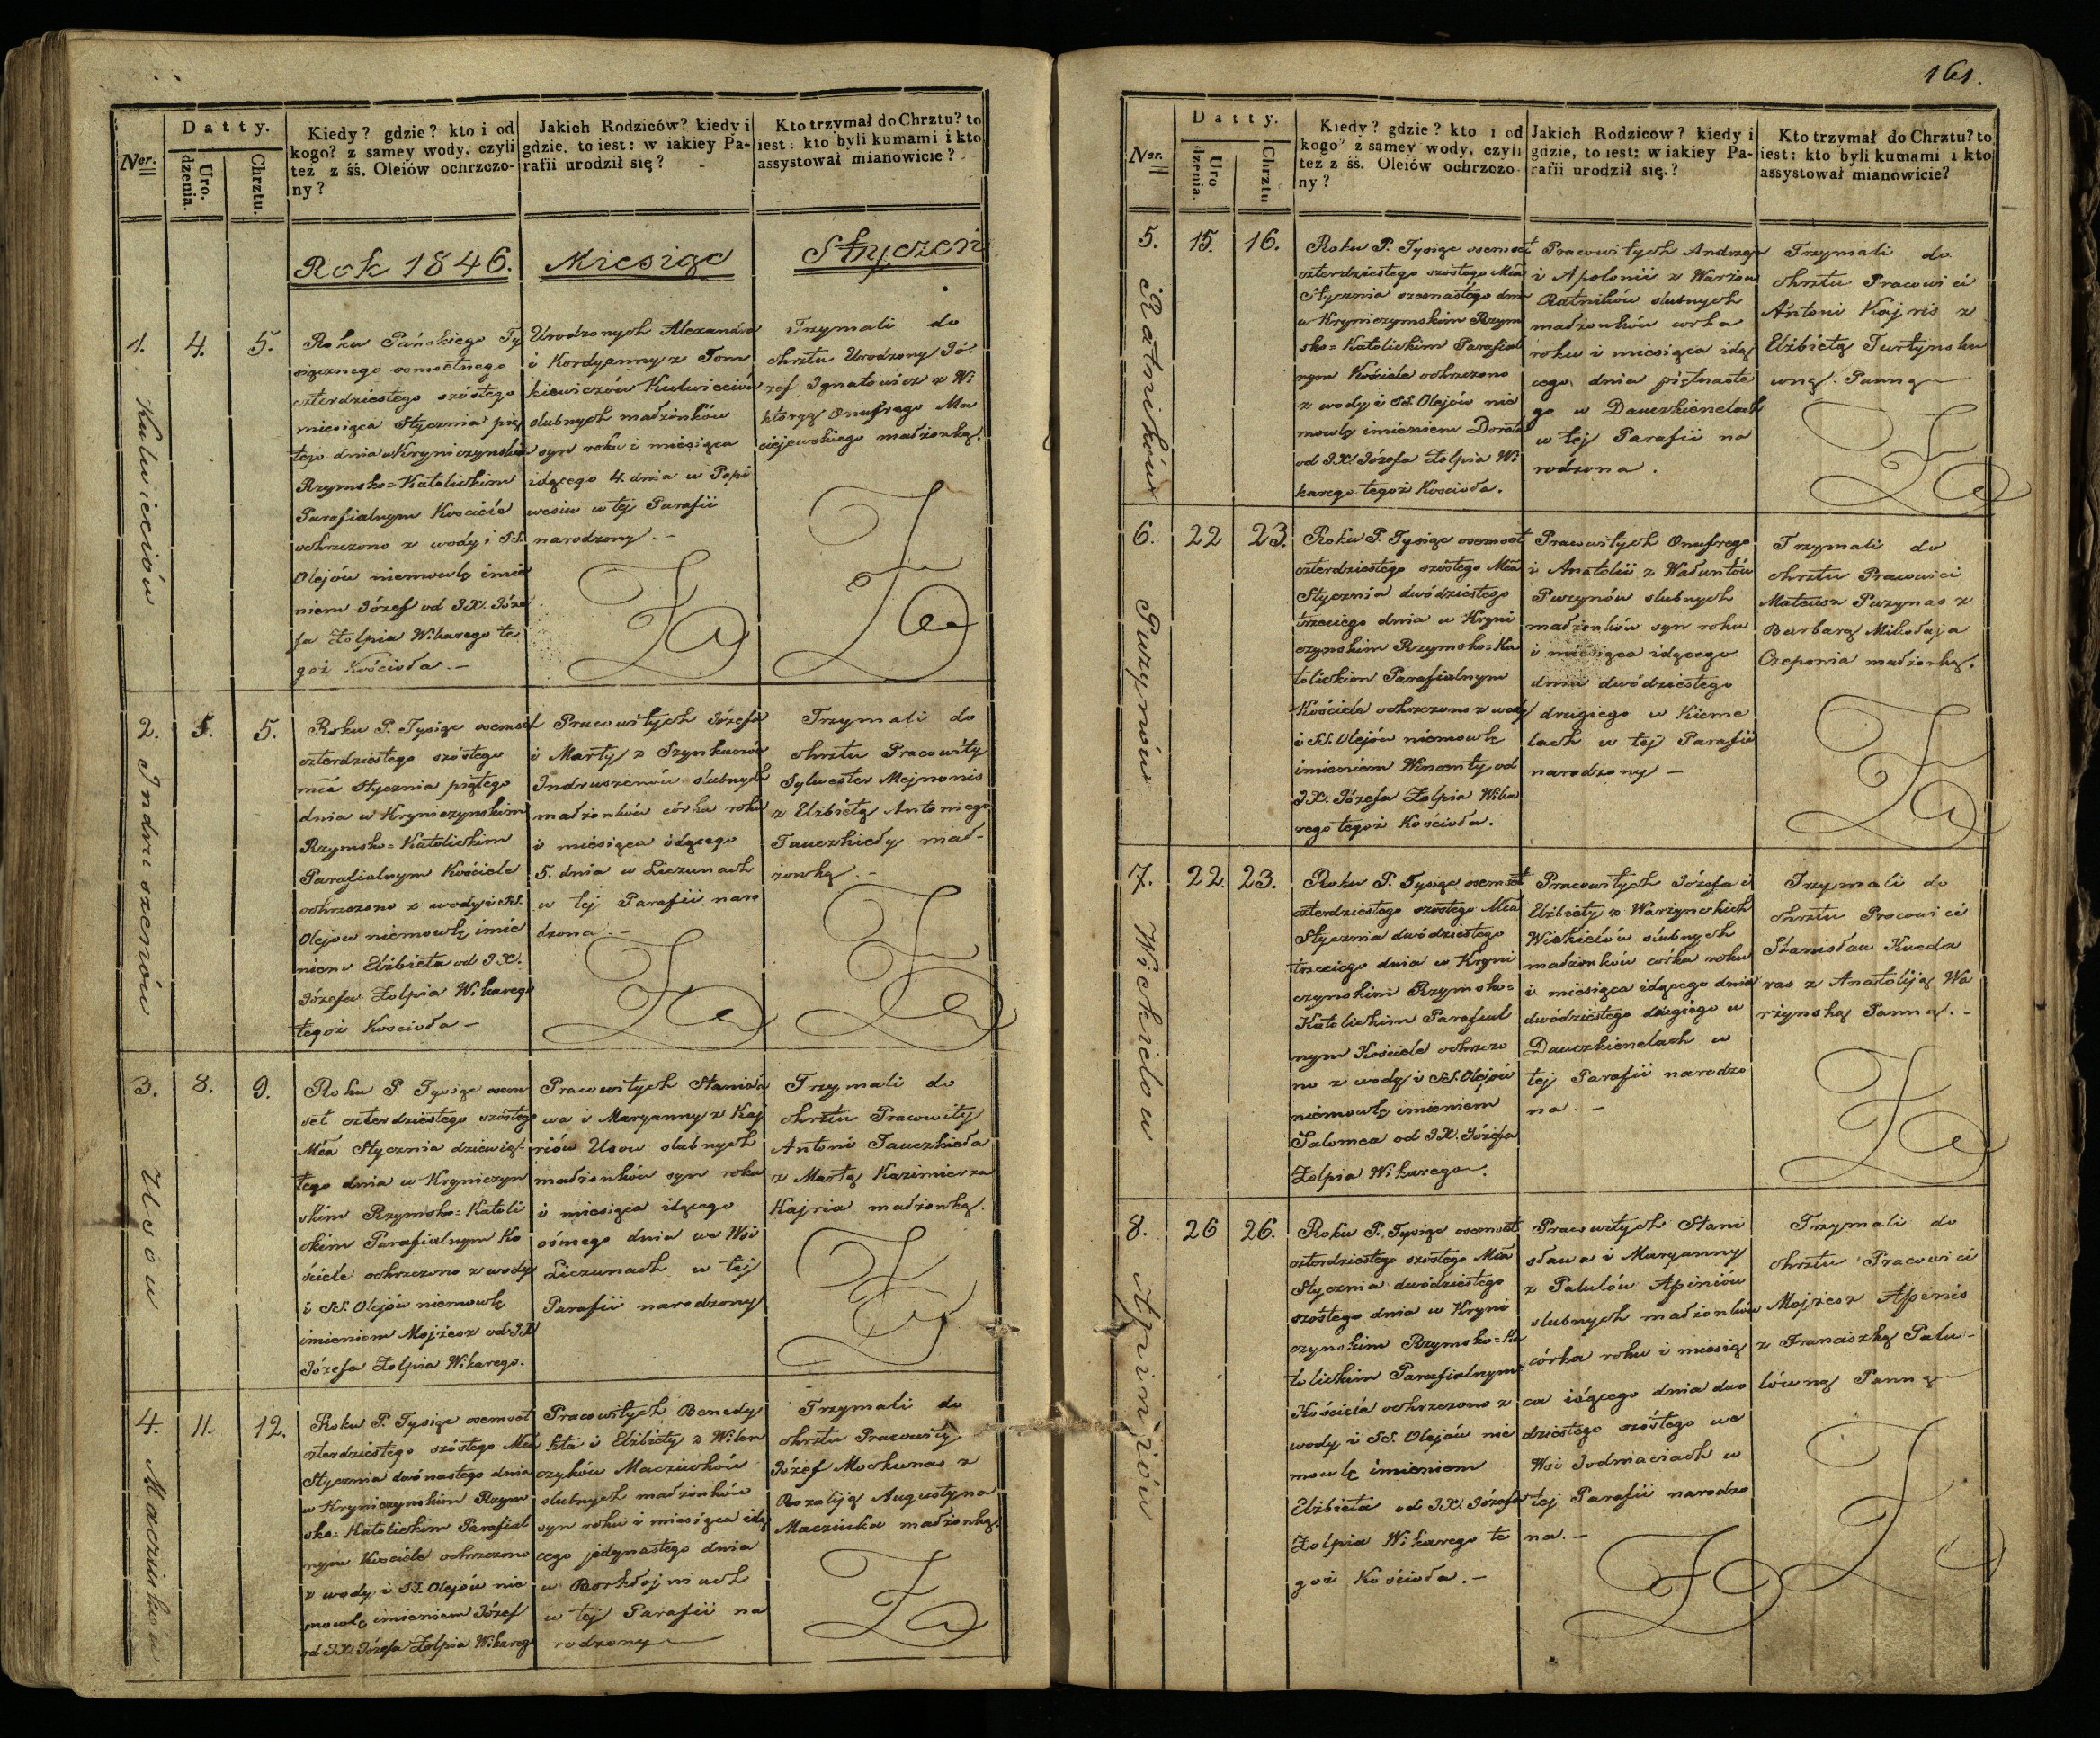 Ner.
Datty.
Uro.
dzenia.
Chrztu.
Kiedy? gdzie? kto i od
kogo? z samey wody, czyli
też z śś. Oleiów ochrzczo-
ny?
Jakich Rodziców? kiedy i
gdzie, to iest: w iakiey Pa-
rafii urodził się?
Kto trzymał do Chrztu? to
iest: kto byli kumami i kto
assystował mianowicie?
Rok 1846. Miesiąc Styczeń
1. Kulwieciów
4.
5.
Roku Pańskiego Ty
siącznego osmsetnego
czterdziestego szóstego
miesiąca Stycznia pią
tego dnia w Kryniczyńskim
Rzymsko=Katolickim
Parafialnym Kościele
ochrzczono z wody i SS.
Olejów niemowlę imie
niem Józef od JX. Józe
fa Zolpia Wikarego te
goż Kościoła.-
Urodzonych Alexandra
i Kordyanny z Tom
kiewiczów Kulwieciów
slubnych małżonków
syn roku i miesiąca
idącego 4. dnia w Popi
wesiu w tej Parafii
narodzony.-
Trzymali do
chrztu Urodzony Jó-
zef Ignatowicz z Wi
ktoryą Onufrego Ma
ciejewskiego małżonką.
2. Indruszenów
5.
5.
Roku P. Tysiąc osemset
czterdziestego szóstego
mca Stycznia piątego
dnia w Kryniczyńskim
Rzymsko=Katolickim
Parafialnym Kościele
ochrzczono z wody i SS.
Olejow niemowlę imie
niem Elżbieta od JX.
Józefa Zolpia Wikarego
tegoż Kościoła-
Pracowitych Józefa
i Marty z Szynkunów
Indruszenów slubnych
małżonków córka roku
i miesiąca idącego
5. dnia w Liczunach
w tej Parafii naro
dzona.-
Trzymali do
chrztu Pracowity
Sylwester Mejnonis
z Elżbietą Antoniego
Tauczkiedy mał-
żonką.-
3. Usów
8.
9.
Roku P. Tysiąc osem
set czterdziestego szóstego
Mca Stycznia dziewią-
tego dnia w Kryniczyn
skim Rzymsko=Katoli
ckim Parafialnym Ko
ściele ochrzczono z wody
i SS. Olejów niemowlę
imieniem Mojżesz od JX
Józefa Zolpia Wikarego.
Pracowitych Stanisła
wa i Maryanny z Kaj
riów Usow slubnych
małżonków syn roku
i miesiąca idącego
osmego dnia we Wsi
Liczunach w tej
Parafii narodzony
Trzymali do
chrztu Pracowity
Antoni Tauczkieła
z Martą Kazimierza
Kajria małżonką.
4. Macziukow
11.
12.
Roku P. Tysiąc osemset
czterdziestego szóstego Mca
Stycznia dwónastego dnia
w Kryniczyńskim Rzym
sko=Katolickim Parafial
nym Kościele ochrzczono
z wody i SS. Olejów nie
mowlę imieniem Józef
od JX. Józefa Zolpia Wikarego
Pracowitych Benedy
kta i Elżbiety z Wilen
czyków Macziuków
slubnych małżonków
syn roku i miesiąca idą
cego jedynastego dnia
w Borkłojniach
w tej Parafii na
rodzony
Trzymali do
chrztu Pracowity
Józef Mockunas z
Rozaliją Augustyna
Macziuka małżonką.
161.
Ner.
Datty.
Uro
dzenia.
Chrztu
Kiedy? gdzie? kto i od
kogo? z samey wody, czyli
też z śś. Oleiów ochrzczo-
ny?
Jakich Rodziców? kiedy i
gdzie, to iest: w iakiey Pa-
rafii urodził się.?
Kto trzymał do Chrztu? to
iest: kto byli kumami i kto
assystował mianowicie?
5. Ratników
15.
16.
Roku P. Tysiąc osemset
czterdziestego szóstego Mca
Stycznia szesnastego dnia
w Kryniczymskim Rzym
sko=Katolickim Parafial
nym Kościele ochrzczono
z wody i SS. Olejów nie
mowlę imieniem Dorota
od JX. Józefa Zolpia Wi
karego tegoż Kościoła.
Pracowitych Andrzeja
i Apolonii z Warżow
Ratników slubnych
małżonków córka
roku i miesiąca idą
cego dnia piętnaste
go w Dauczkienelach
w tej Parafii na
rodzona.
Trzymali do
chrztu Pracowici
Antoni Kajris z
Elżbietą Turtynsku
wną Panną
6. Puzynów
22
23.
Roku P. Tysiąc osemset
czterdziestego szóstego Mca
Stycznia dwódziestego
trzeciego dnia w Kryni
czynskim Rzymsko=Ka
tolickim Parafialnym
Kościele ochrzczono z wody
i SS. Olejów niemowlę
imieniem Wincenty od
JX. Józefa Zolpia Wika
rego tegoż Kościoła.
Pracowitych Onufrego
i Anatolii z Wałuntów
Puzynów slubnych
małżonków syn roku
i miesiąca idącego
dnia dwódziestego
drugiego w Kieme
lach w tej Parafii
narodzony-
Trzymali do
chrztu Pracowici
Mateusz Puzynas z
Barbarą Mikołaja
Czeponia małżonką.
7. Wickielow
22.
23.
Roku P. Tysiąc osemset
czterdziestego szóstego Mca
Stycznia dwódziestego
trzeciego dnia w Kryni
czynskim Rzymsko=
Katolickim Parafial
nym Kościele ochrzczo
no z wody i SS. Olejów
niemowlę imieniem
Salomea od JX. Józefa
Zolpia Wikarego.
Pracowitych Józefa i
Elżbiety z Warżynskich
Wickielów slubnych
małżonków córka roku
i miesiąca idącego dnia
dwódziestego drugiego w
Dauczkienelach w
tej Parafii narodzo
na.-
Trzymali do
chrztu Pracowici
Stanisław Kueda
ras z Anatoliją Wa
rżynską Panną.-
8. Apiniów
26
26.
Roku P. Tysiąc osemset
czterdziestego szóstego Mca
Stycznia dwódziestego
szóstego dnia w Kryni
czynskim Rzymsko=Ka
tolickim Parafialnym
Kościele ochrzczono z
wody i SS. Olejów nie
mowlę imieniem
Elżbieta od JX. Józefa
Zolpia Wikarego te
goż Kościoła.-
Pracowitych Stani
sława i Maryanny
z Palulów Apiniów
slubnych małżonków
córka roku i miesią
ca idącego dnia dwo
dziestego szóstego we
Wsi Jodmaciach w
tej Parafii narodzo
na.-
Trzymali do
chrztu Pracowici
Mojżesz Apinis
z Franciszką Palu-
lówną Panną